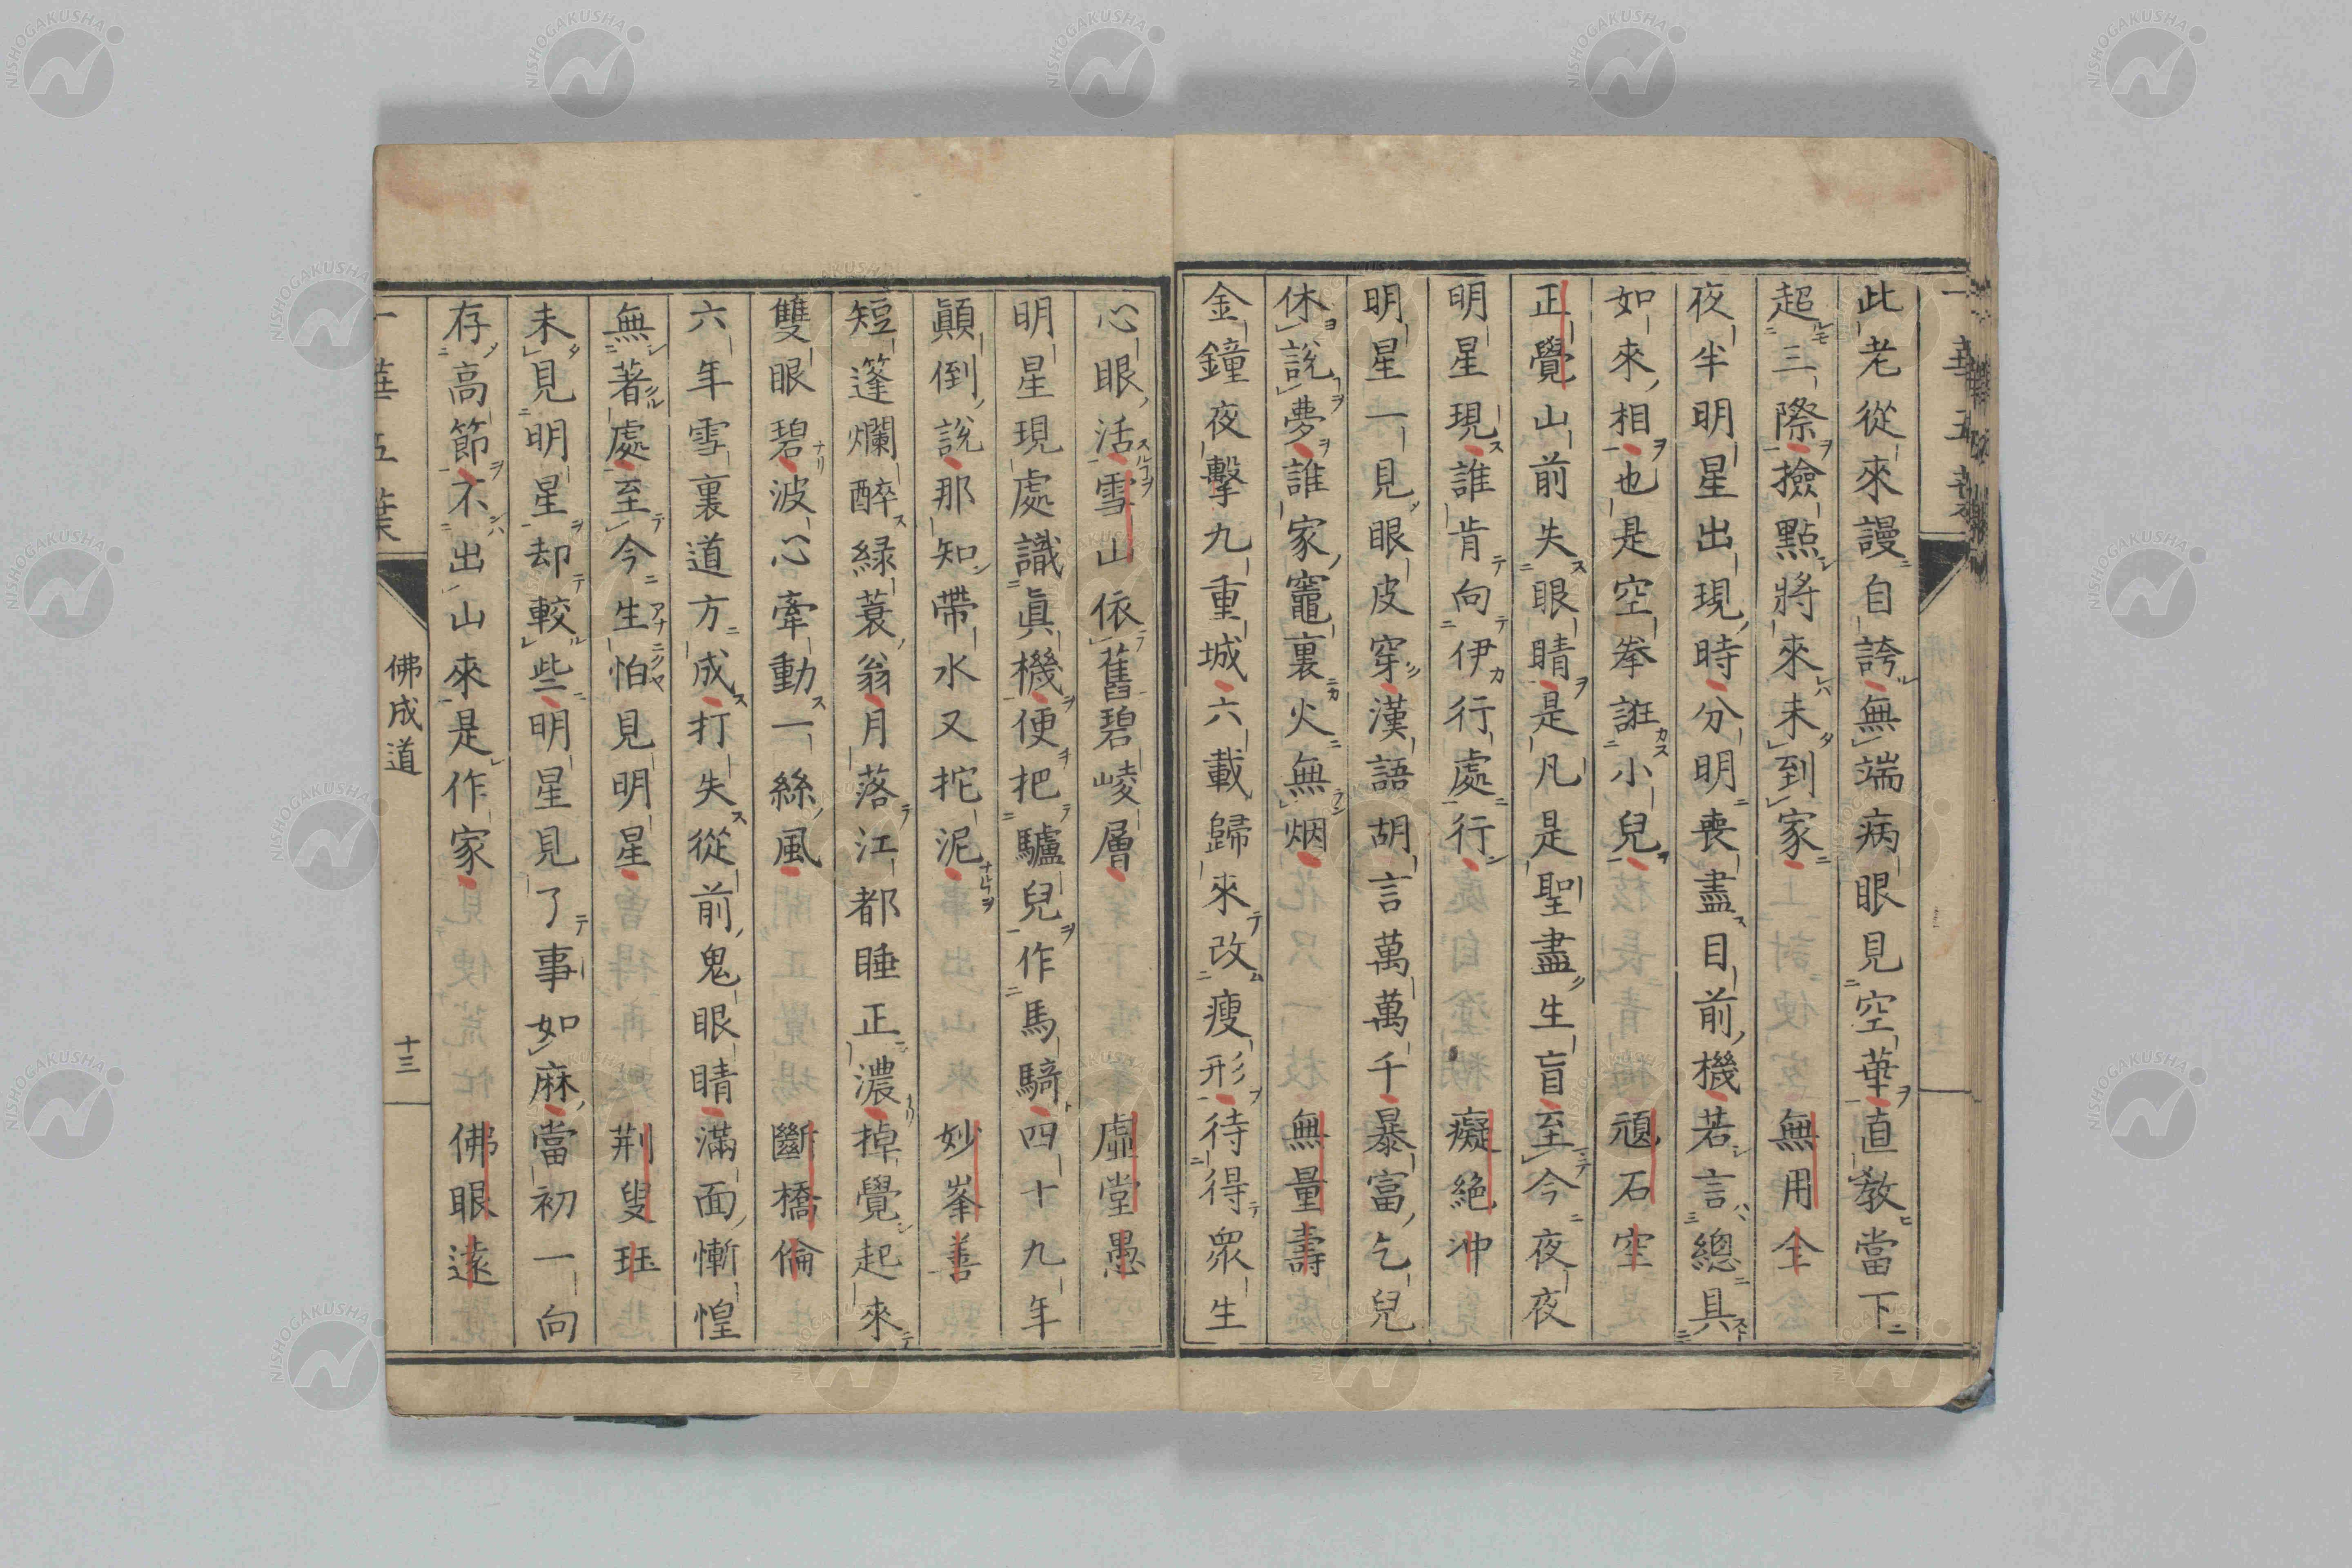 此老從來謾自誇無端病眼見空華直教當下
超三際撿點將來未到家 無用全
夜半明星出現時分明喪盡目前機若言總具
如來相也是空拳誑小兒 頑石空
正覺山前失眼睛是凡是聖盡生盲至今夜夜
明星現誰肯向伊行處行 癡絕冲
明星一見眼皮穿漢語胡言萬萬千暴富乞兒
休說夢誰家竈裏火無烟 無量壽
金鐘夜擊九重城六載歸來改瘦形待得眾生
心眼活雪山依舊碧崚層 虛堂愚
明星現處識眞機便把驢兒作馬騎四十九年
顚倒說那知帶水又拕泥 妙峯善
短篷爛醉綠蓑翁月落江都睡正濃掉覺起來
雙眼碧波心牽動一絲風 斷橋倫
六年雪裏道方成打失從前鬼眼睛滿面慚惶
無著處至今生怕見明星 荆叟珏
未見明星却較些明星見了事如麻當初一向
存高節不出山來是作家 佛眼遠
一華五葉 佛成道 十三